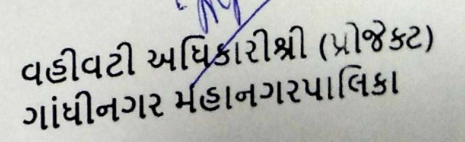 વહીવટી અધિકારીશ્રી (પ્રોજેકટ)
ગાંધીનગર મહાનગરપાલિકા